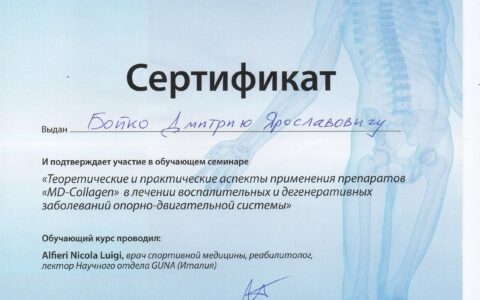 Сертификат
Выдан Бойко Дмитрию Ярославовичу
И подтверждает участие в обучающем семинаре
«Теоретические и практические аспекты применения препаратов
«MD-Collagen» в лечении воспалительных и дегенеративных
заболеваний опорно-двигательной системы»
Обучающий курс проводил:
Alfieri Nicola Luigi, врач спортивной медицины, реабилитолог,
лектор Научного отдела GUNA (Италия)